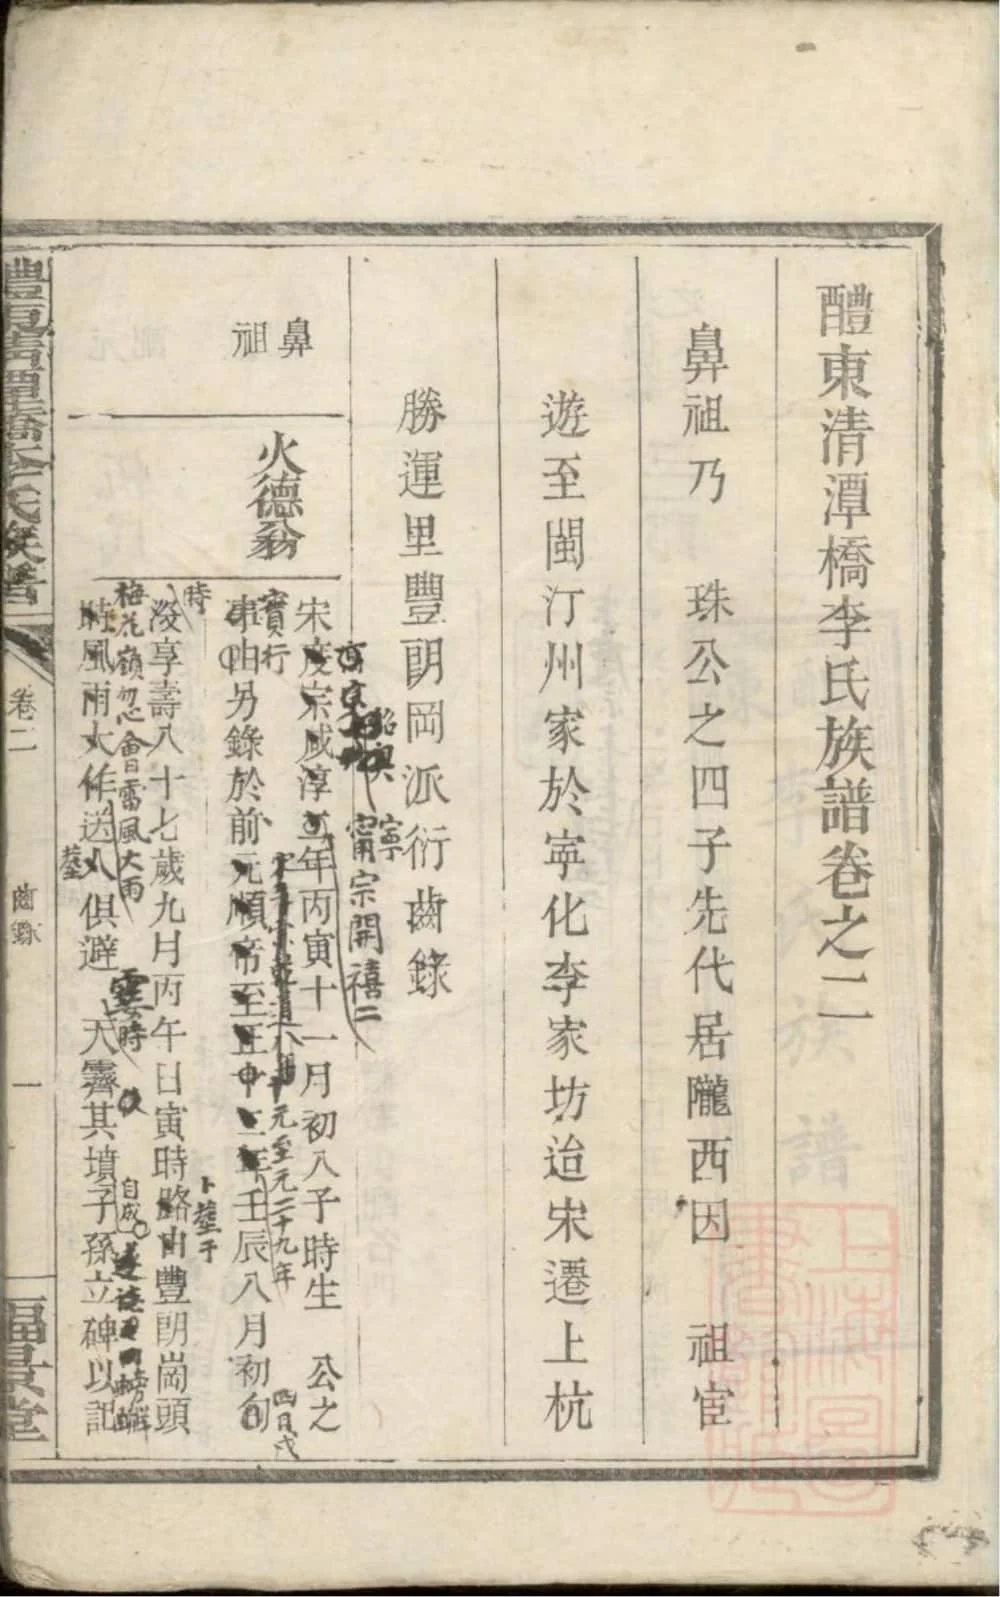 醴東清潭橋李氏族譜卷之二
鼻祖乃 珠公之四子先代居隴西因 祖宦
遊至閩汀州家於寧化李家坊迨宋遷上杭
勝運里豐朗岡派衍齒錄
鼻祖
火德翁
寧
甯宗開禧二
宋度宗咸淳二年丙寅十一月初八子時生 公之
實行
元至元二十九年
事由另錄於前元順帝至正十二年壬辰八月初旬
四日戌
時
卜塟于
歿享壽八十七歲九月丙午日寅時路由豐朗崗頭
梅花嶺忽會雷風大雨
霎時
自成
時風雨大作送人俱避 天霽其墳子孫立碑以記
塟
醴東清潭橋李氏族譜
卷二
齒錄
一